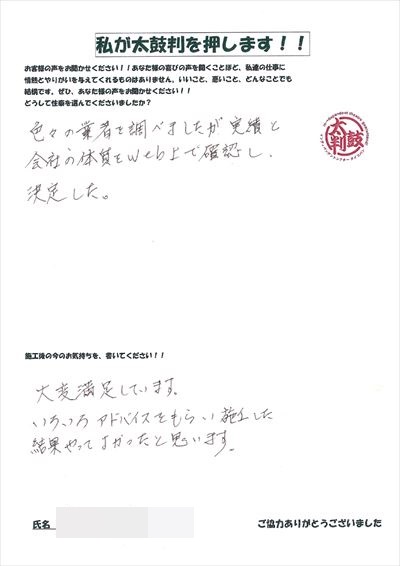 私が太鼓判を押します！！
お客様の声をお聞かせください！！あなた様の喜びの声を聞くことほど、私達の仕事に
情熱とやりがいを与えてくれるものはありません。いいこと、悪いこと、どんなことでも
結構です。ぜひ、あなた様の声をお聞かせください！！
どうして住泰を選んでくださいましたか？
色々の業者を調べましたが実績と
会社の体質をweb上で確認し、
決定した。
太鼓判
施工後の今のお気持ちを、書いてください！！
大変満足しています。
いろいろアドバイスをもらい施工した
結果やってよかったと思います。
氏名
ご協力ありがとうございました